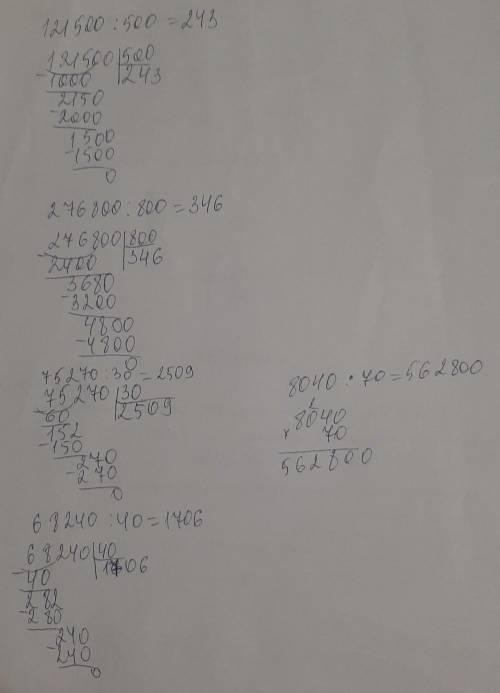 121500 : 500 = 243
121500 500
- 1000 243
2150
- 2000
1500
- 1500
0
276800 : 800 = 346
276800 800
- 2400 346
3680
- 3200
4800
- 4800
0
75270 : 30 = 2509
75270 30
- 60 2509
152
- 150
270
- 270
0
68240 : 40 = 1706
68240 40
- 40 1706
282
- 280
240
- 240
0
8040 · 70 = 562800
2
8040
× 70
562800